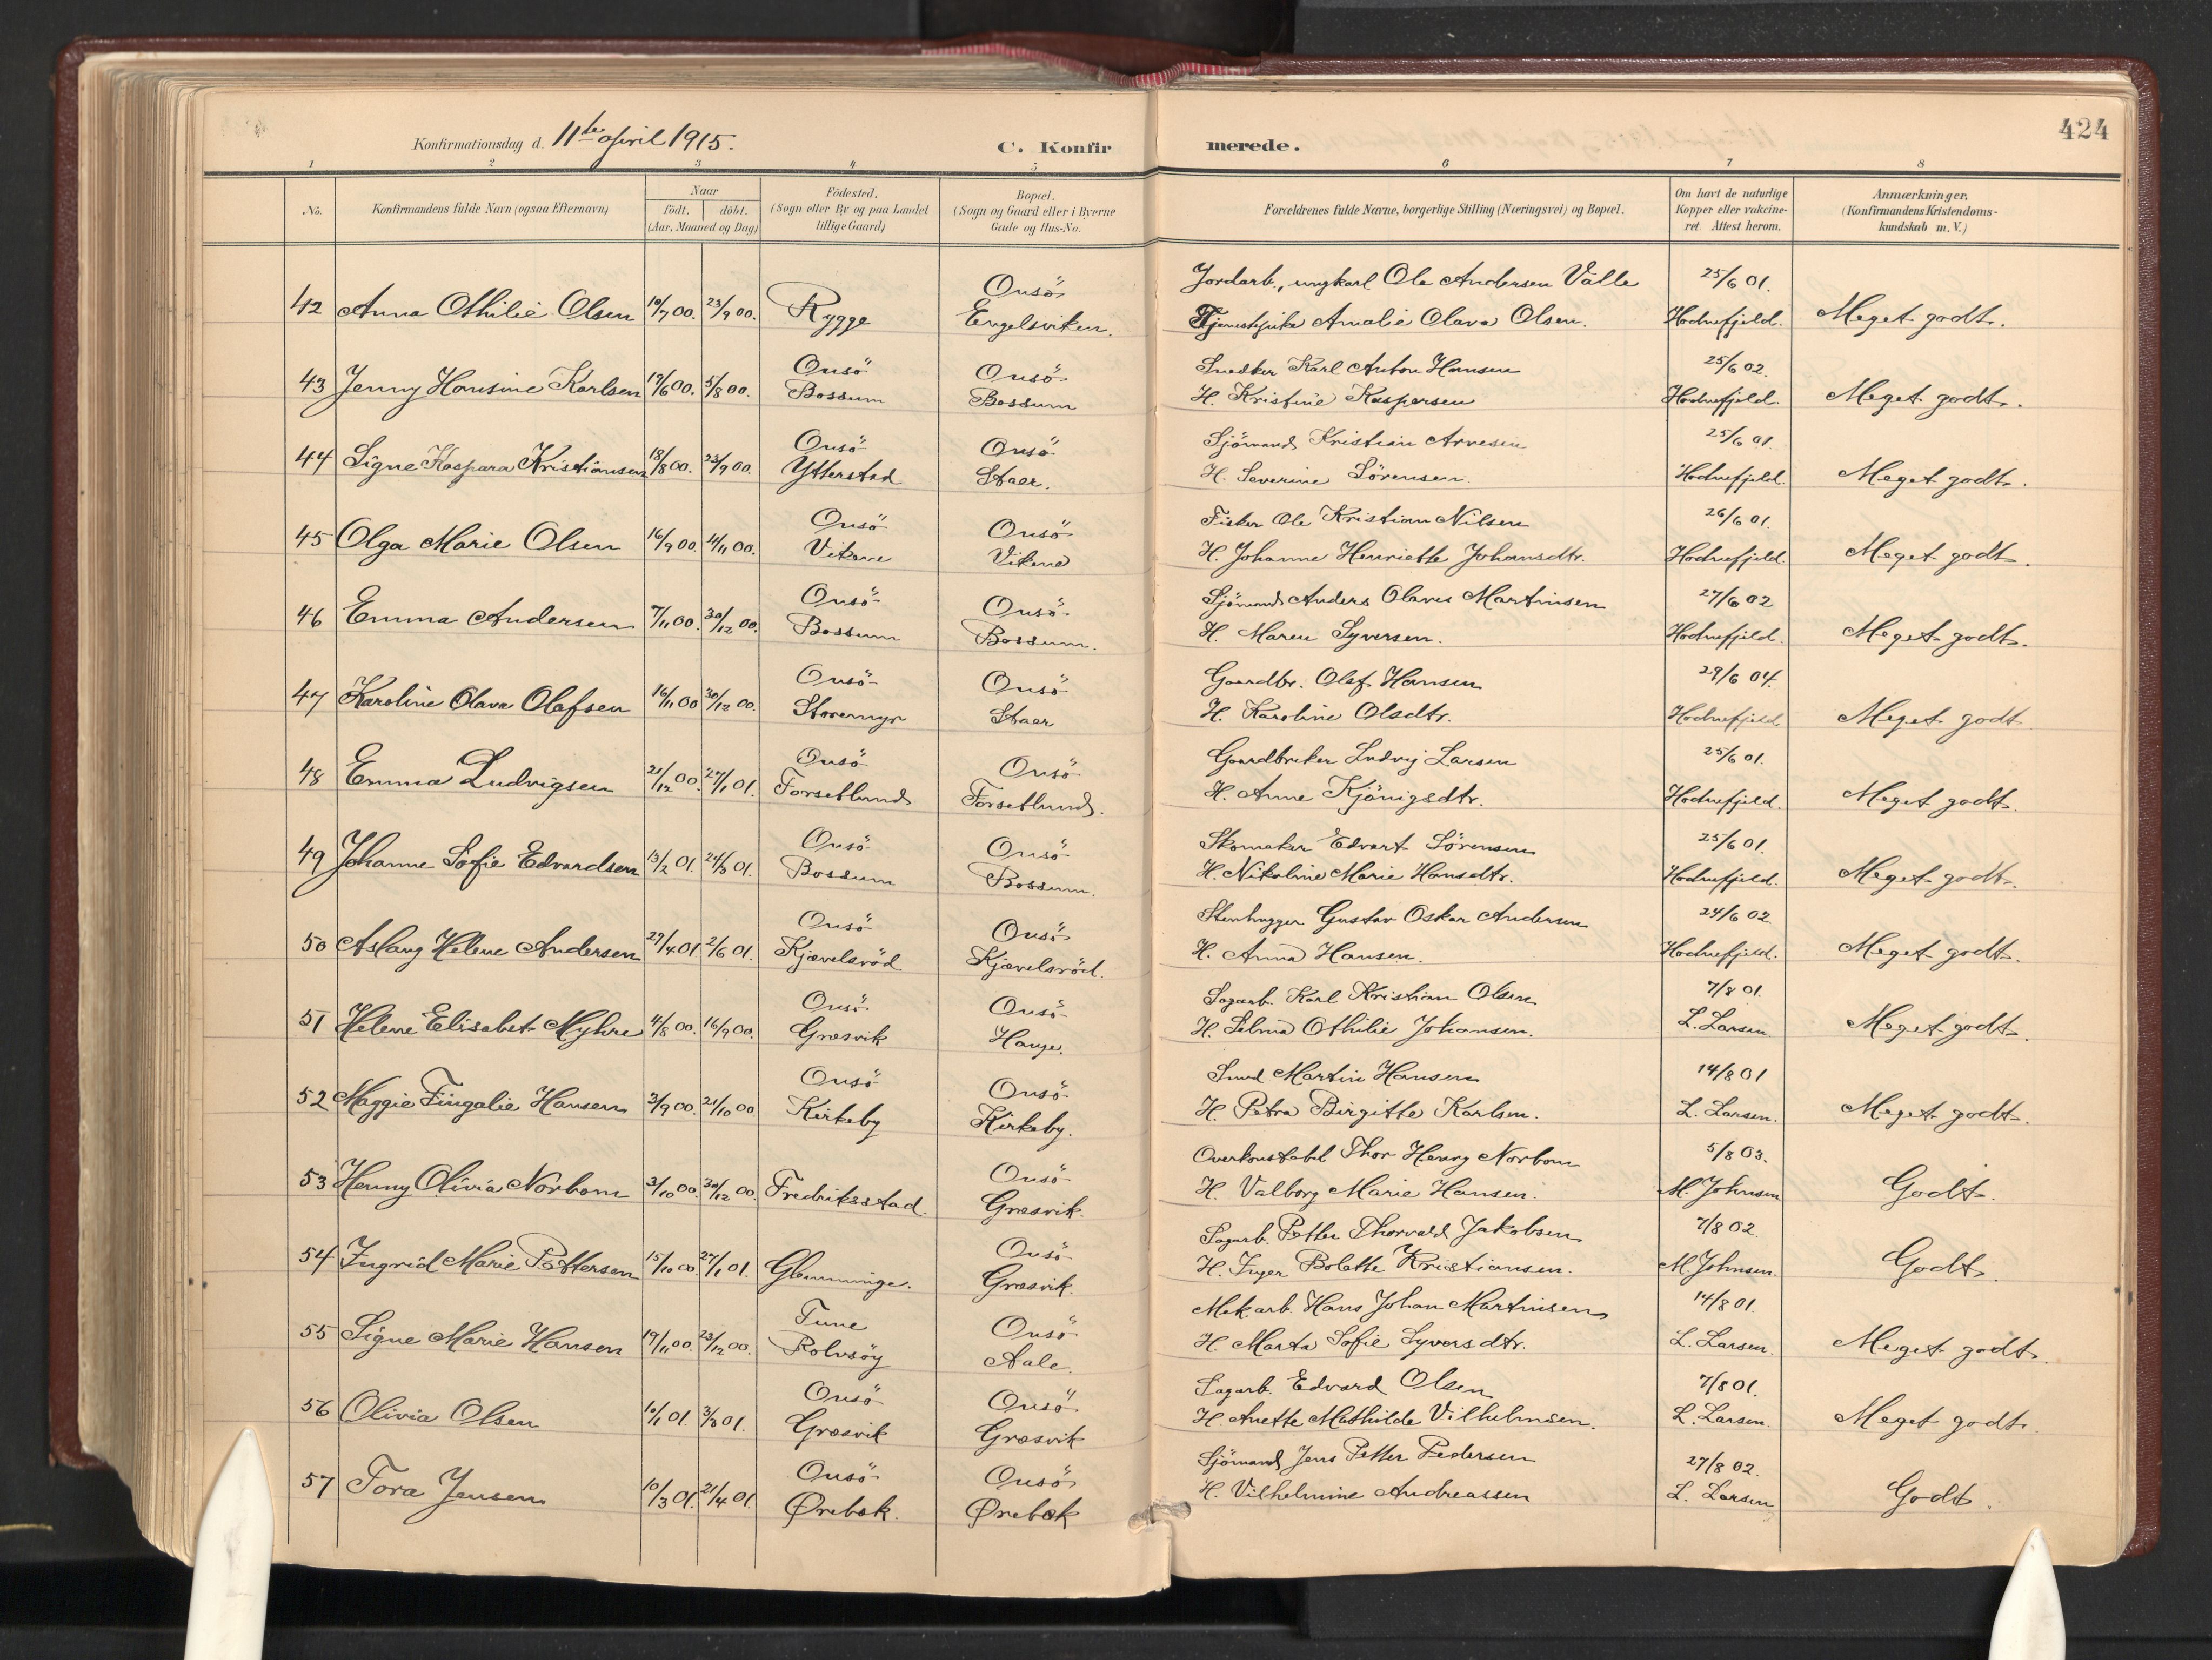 424
Konfirmationsdag d. 11te april 1915.
C. Konfirmerede.
1 2 3 4 5 6 7 8
No.
Konfirmandens fulde Navn (ogsaa Efternavn)
Naar
født. | döbt.
(Aar, Maaned og Dag)
Födested.
(Sogn eller By og paa Landet
tillige Gaard)
Bopæl.
(Sogn og Gaard eller i Byerne
Gade og Hus-No.
Forældrenes fulde Navne, borgerlige Stilling (Næringsvei) og Bopæl.
Om havt de naturlige
Kopper eller vakcine-
ret. Attest herom.
Anmærkninger.
(Konfirmandens Kristendoms-
kundskab m. V.)
Onsö Jordarb., ungkarl Ole Andersen Välle 25/6 01.
42 Anna Othilie Olsen 10/7 00. 23/9 00. Rygge Engelsviken. Tjenestepike Amalie Olava Olsen. Hodnefjeld. Meget godt.
Onsö Onsö Snedker Karl Anton Hansen 25/6 02.
43 Jenny Hansine Karlsen 19/6 00. 5/8 00. Bossum Bossum H. Kristine Kaspersen Hodnefjeld. Meget godt.
Onsö Onsö Sjömand Kristian Arvesen 25/6 01.
44 Signe Kaspara Kristiansen 18/8 00. 23/9 00. Ytterstad Staer. H. Severine Sörensen. Hodnefjeld. Meget godt.
Onsö Onsö Fisker Ole Kristian Nilsen 26/6 01.
45 Olga Marie Olsen 16/9 00. 14/11 00. Vikene Vikene H. Johanne Henriette Johansdtr. Hodnefjeld. Meget godt.
Onsö Onsö Sjömand Anders Olaves Martinsen 27/6 02
46 Emma Andersen 7/11 00. 30/12 00. Bossum Bossum. H. Maren Syversen. Hodnefjeld. Meget godt.
Onsö Onsö Gaardbr. Olaf Hansen 29/6 04.
47 Karoline Olava Olafsen 16/11 00 30/12 00. Storemyr Staer H. Karoline Olsdtr. Hodnefjeld Meget godt
Onsö Onsö Gaardbruker Ludvig Larsen 25/6 01.
48 Emma Ludvigsen 21/12 00. 27/1 01. Forsetlund Forsetlund. H. Anne Kjönigsdtr. Hodnefjeld. Meget godt.
Onsö Onsö Skomaker Edvart Sörensen 25/6 01.
49 Johanne Sofie Edvardsen 13/2 01. 24/3 01. Bossum Bossum. H. Nikoline Marie Hansdtr. Hodnefjeld. Meget godt.
Onsö Onsö Stenhugger Gustav Oskar Andersen 24/6 02
50 Aslaug Helene Andersen 29/4 01 2/6 01. Kjævelsröd Kjævelsröd. H. Anna Hansen. Hodnefjeld. Meget godt.
Onsö Onsö Sagarb. Karl Kristian Olsen 7/8 01.
51 Helene Elisabet Myhre 4/8 00. 16/9 00. Græsvik Hauge. H. Selma Othilie Johansen. L. Larsen Meget godt.
Onsö Onsö Smed Martin Hansen 14/8 01
52 Maggie Fingalie Hansen 3/9 00. 21/10 00. Kirkeby Kirkeby. H. Petra Birgitte Karlsen. L. Larsen. Meget godt.
Onsö Overkonstabel Thor Henry Norbom 5/8 03.
53 Henny Olivia Norbom 3/10 00. 30/12 00. Fredriksstad. Græsvik. H. Valborg Marie Hansen. M. Johnsen Godt.
Onsö Sagarb. Petter Thorvald Jakobsen 7/8 02.
54 Ingrid Marie Pettersen 15/10 00 27/1 01. Glemminge. Græsvik. H. Inger Bolette Kristiansen. M. Johnsen. Godt.
Tune Onsö Mek. arb. Hans Johan Martinsen 14/8 01.
55 Signe Marie Hansen 19/11 00. 23/12 00. Rolvsöy Aale. H. Marta Sofie Syversdtr. L. Larsen. Meget godt.
Onsö Onsö Sagarb. Edvard Olsen 7/8 01.
56 Olivia Olsen 10/1 01. 3/3 01. Græsvik Græsvik H. Anette Mathilde Vilhelmsen. L. Larsen. Meget godt.
Onsö Onsö Sjömand Jens Petter Pedersen 27/8 02.
57 Tora Jensen 10/3 01. 21/4 01. Ørebæk. Ørebæk H. Vilhelmine Andreassen L. Larsen Godt.